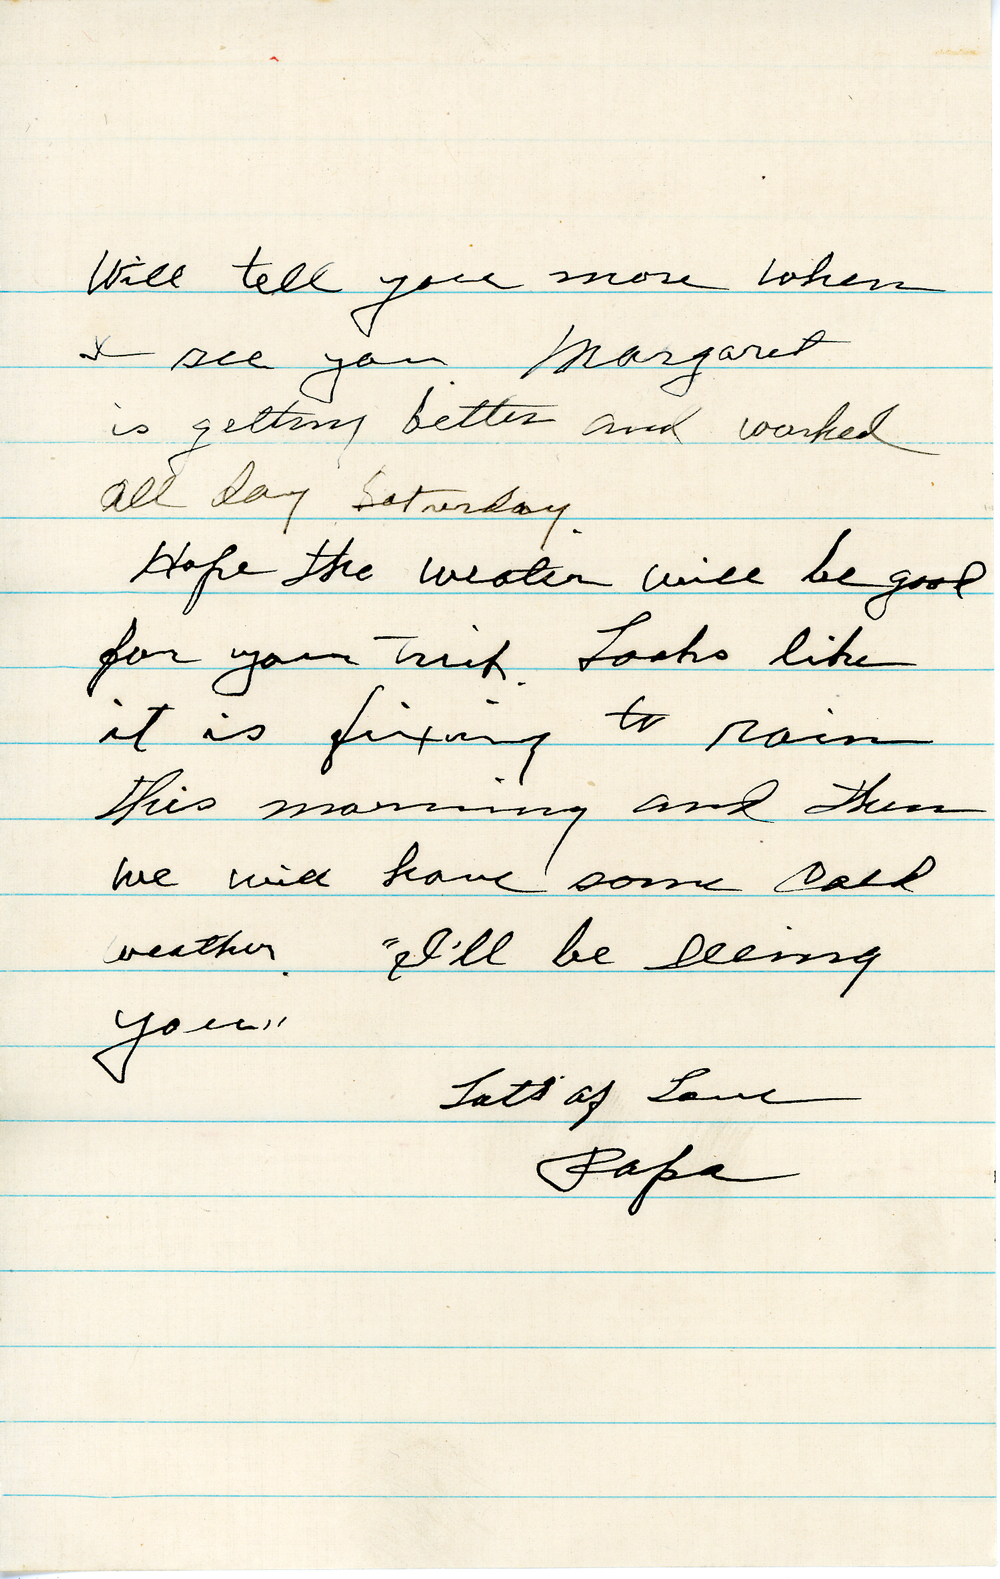 Will tell you more when
I see you Margaret
is getting better and worked
all day Saturday.
Hope the weather will be good
for your trip. Looks like
it is fixing to rain
this morning and then
we will have some cold
weather. "I'll be seeing
you"
Lots of Love
Papa